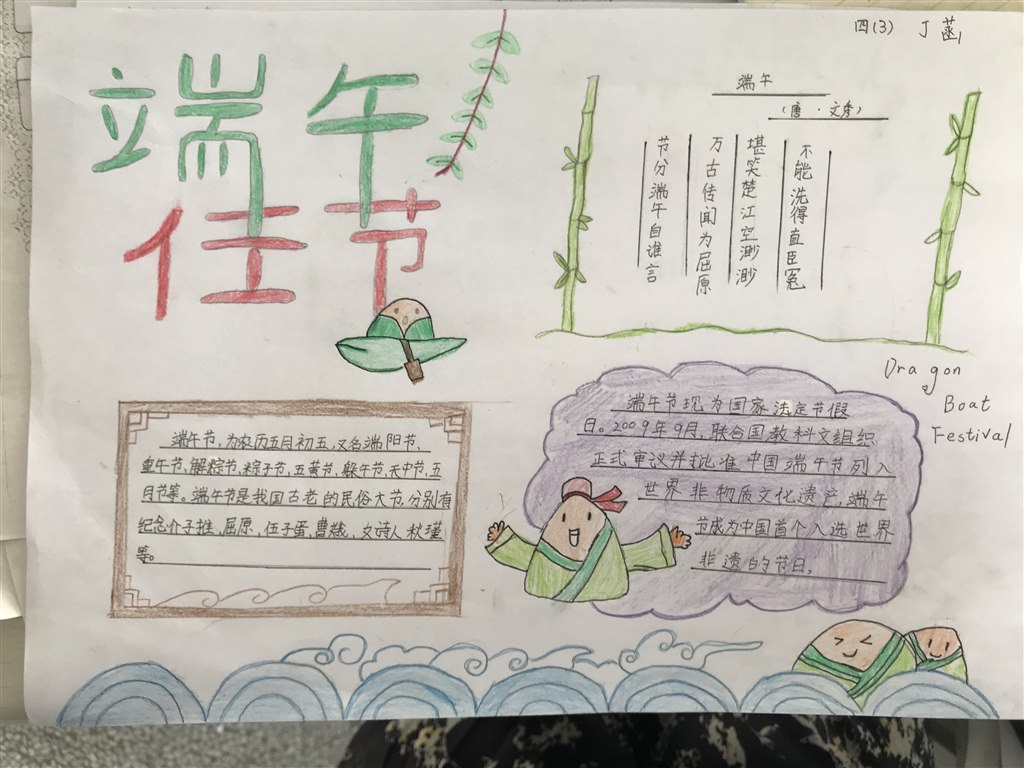 四(3) 丁菡
端午
佳节
端午
(唐·文秀)
节分端午自谁言
万古传闻为屈原
堪笑楚江空渺渺
不能洗得直臣冤
Dragon
Boat
Festival
端午节,为农历五月初五,又名端阳节、
重午节,解粽节,粽子节,五黄节,躲午节,天中节,五
月节等。端午节是我国古老的民俗大节,分别有
纪念介子推,屈原,伍子蛋,曹娥,女诗人秋瑾
等。
端午节现为国家法定节假
日。2009年9月,联合国教科文组织
正式审议并批准中国端午节列入
世界非物质文化遗产,端午
节成为中国首个入选世界
非遗的节日。